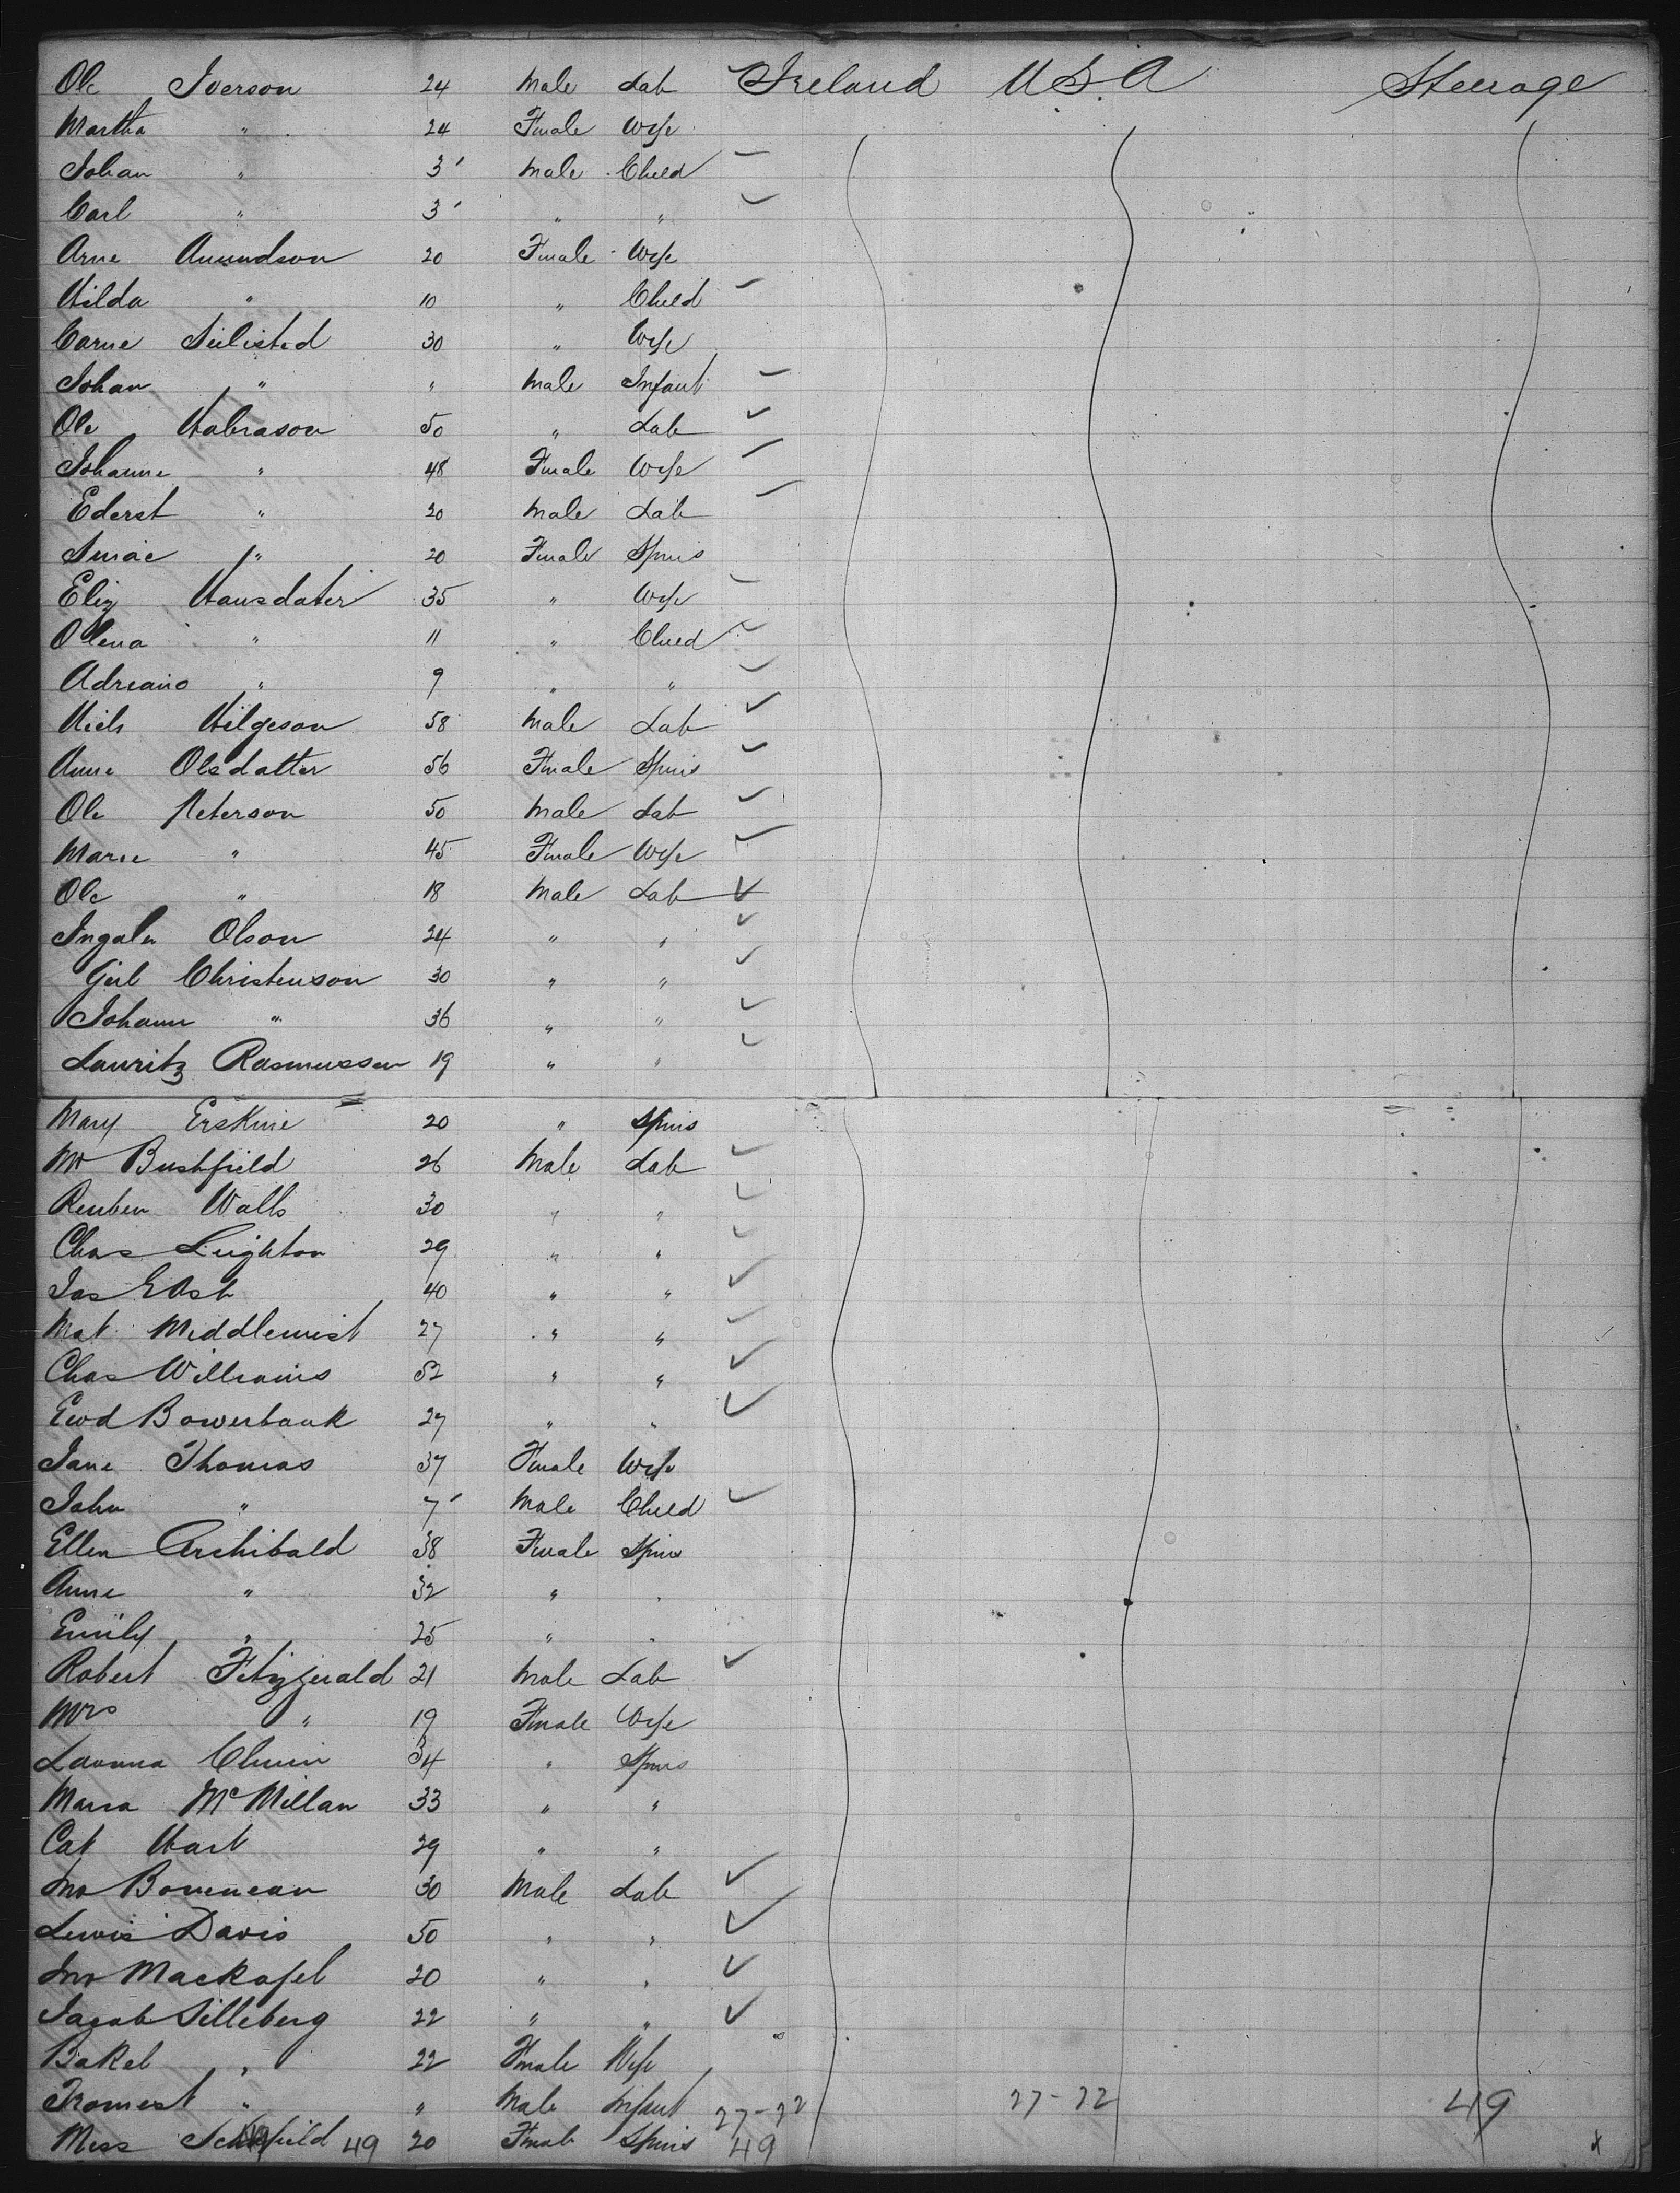 Ole Iverson 24 Male Lab Ireland U.S.A Steerage
Martha " 24 Female Wife
Johan " 3 Male Child
Carl " 3 " "
Arne Amundson 20 Female Wife
Hilda " 10 " Child
Carrie 30 " Wife
Johan " " Male Infant
Ole Halvrason 50 " Lab
Johanne " 48 Female Wife
Ederst " 20 Male Lab
" 20 Female Spins
Eliz Hansdater 35 " Wife
Olena " 11 " Child
Adreano " 9 " "
Niels Hilgeson 58 Male Lab
Anne Olsdatter 56 Female Spins
Ole Peterson 50 Male Lab
Marie " 45 Female Wife
Ole " 18 Male Lab
Olson 24 " "
Christenson 30 " "
Johann " 36 " "
Lauritz Rasmussen 19 " "
Mary Erskine 20 " Spins
Bushfield 26 Male Lab
Reuben Walls 30 " "
Chas Leighton 29 " "
Jas East 40 " "
Mat Middlemist 27 " "
Chas Williams 52 " "
Ewd Bowerbank 27 " "
Jane Thomas 37 Female Wife
John " 7 Male Child
Ellen Archibald 38 Female Spins
Anne " 32 " "
Emily " 25 " "
Robert Fitzgerald 21 Male Lab
Mrs " 19 Female Wife
34 " Spins
Maria McMillan 33 " "
Cat Hart 29 " "
Jno 30 Male Lab
Lewis Davis 50 " "
Jno 20 " "
Jacob Silleberg 22 " "
Bakel " 22 Female Wife
" " Male Infant 27-22 27-22 49
Miss 49 20 Female Spins 49